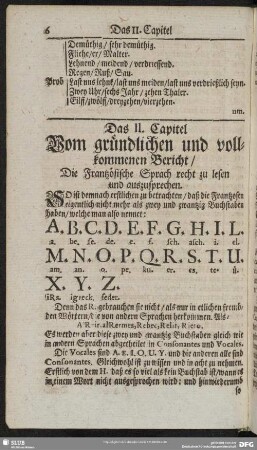 6 Das II. Capitel
Demüthig / sehr demüthig.
Fliehe/er/ Malter.
Lehnend / meidend / verdriessend.
Regen/ Ruß/ Sau.
Prob last uns lehns/last uns meiden/last uns verdrießlich seyn.
Zwey Uhr/sechs Jahr / zehen Thaler.
Eilff/zwölff/dreyzehen/vierzehen.
Das II. Capitel
Vom gründlichen und voll-
kommenen Bericht /
Die Frantzösische Sprach recht zu lesen
und auszusprechen.
SO ist demnach erstlichen zu betrachten / daß die Frantzosen
eigentlich nicht mehr als zwey und zwantzig Buchstaben
haben / welche man also nennet:
A. B. C. D. E. F. G. H. I. L.
a. be. se. de. e. f. sch. asch. i. el.
M. N. O. P. Q. R. S. T. U.
am. an. o. pe. ku. er. es. te. ü.
X. Y. Z.
igreck. seder.
Denn das K. gebrauchen sie nicht / als nur in etlichen fremb-
den Wörtern / die von andern Sprachen herkommen. Als-
Es werden aber diese zwey und zwantzig Buchstaben gleich wie
in andern Sprachen abgetheilet in Consonantes und Vocales.
Die Vocales sind A. E. I. O. U. Y. und die anderen alle sind
Consonantes. Gleichwohl ist zu wissen und in acht zu nehmen.
Erstlich von dem H. daß es so viel als kein Buchstab ist / wann es
in einem Wort nicht ausgesprochen wird: und hinwiederumb
SLUB